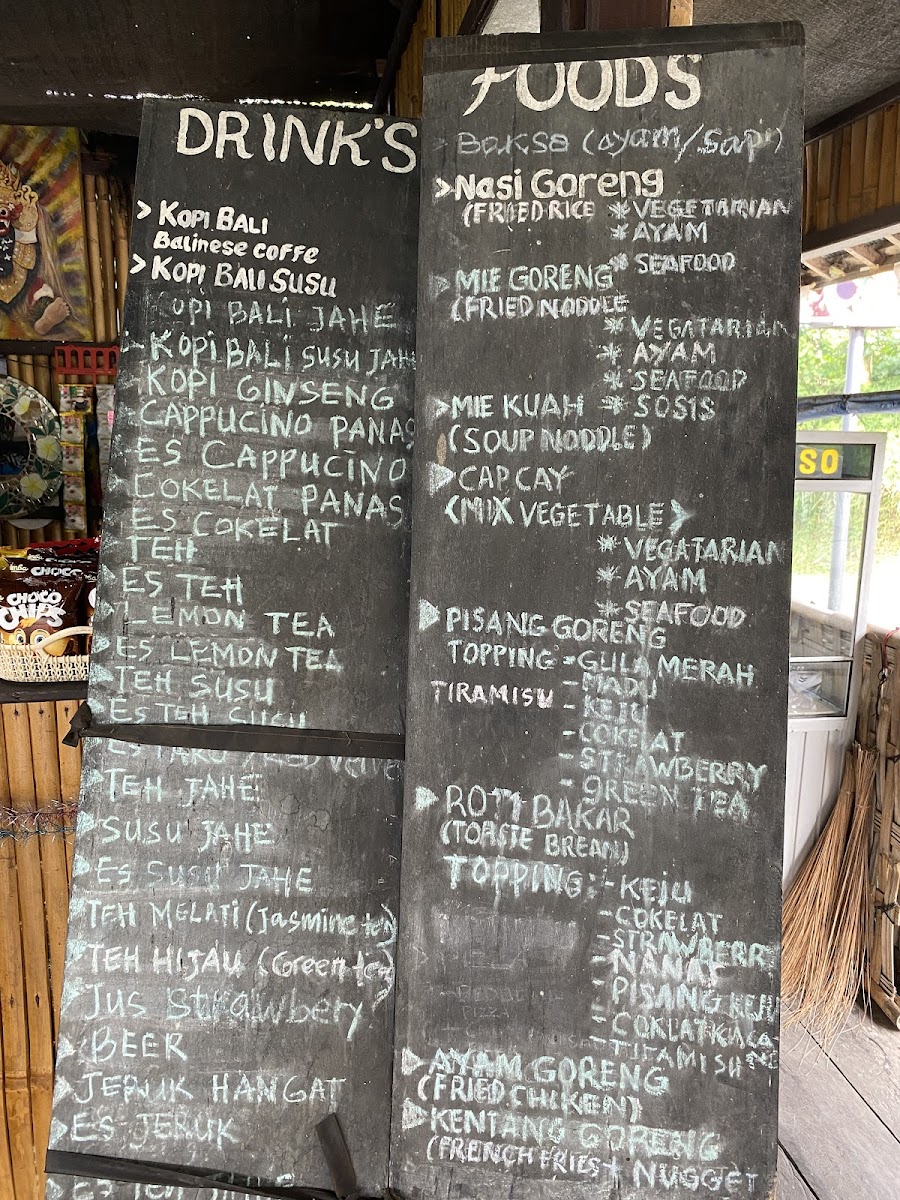 DRINK'S
> KOPI BALI
Balinese coffe
> KOPI BALI SUSU
KOPI BALI JAHE
KOPI BALI SUSU JAHE
KOPI GINSENG
CAPPUCINO PANAS
ES CAPPUCINO
COKELAT PANAS
ES COKELAT
TEH
ES TEH
LEMON TEA
ES LEMON TEA
TEH SUSU
ES TEH SUSU
TEH JAHE
SUSU JAHE
ES SUSU JAHE
TEH MELATI (Jasmine tea)
TEH HIJAU (Green tea)
Jus Strawbery
BEER
JERUK HANGAT
ES JERUK
FOODS
Bakso (ayam/sapi)
> Nasi Goreng
(FRIED RICE * VEGETARIAN
* AYAM
* SEAFOOD
MIE GORENG
(FRIED NODDLE
* VEGATARIAN
* AYAM
* SEAFOOD
> MIE KUAH * SOSIS
(SOUP NODDLE)
> CAPCAY
(MIX VEGETABLE)
* VEGATARIAN
* AYAM
* SEAFOOD
PISANG GORENG
TOPPING - GULA MERAH
- MADU
TIRAMISU - KEJU
- COKELAT
- STRAWBERRY
- GREEN TEA
ROTI BAKAR
(TOASTE BREAD)
TOPPING: - KEJU
- COKELAT
- STRAWBERR
- NANAS
- PISANG KEJU
- COKLAT KACA
- TIRAMISU
AYAM GORENG
(FRIED CHIKEN)
KENTANG GORENG
(FRENCH FRIES + NUGGET
CHOCO
CHIPS
SO